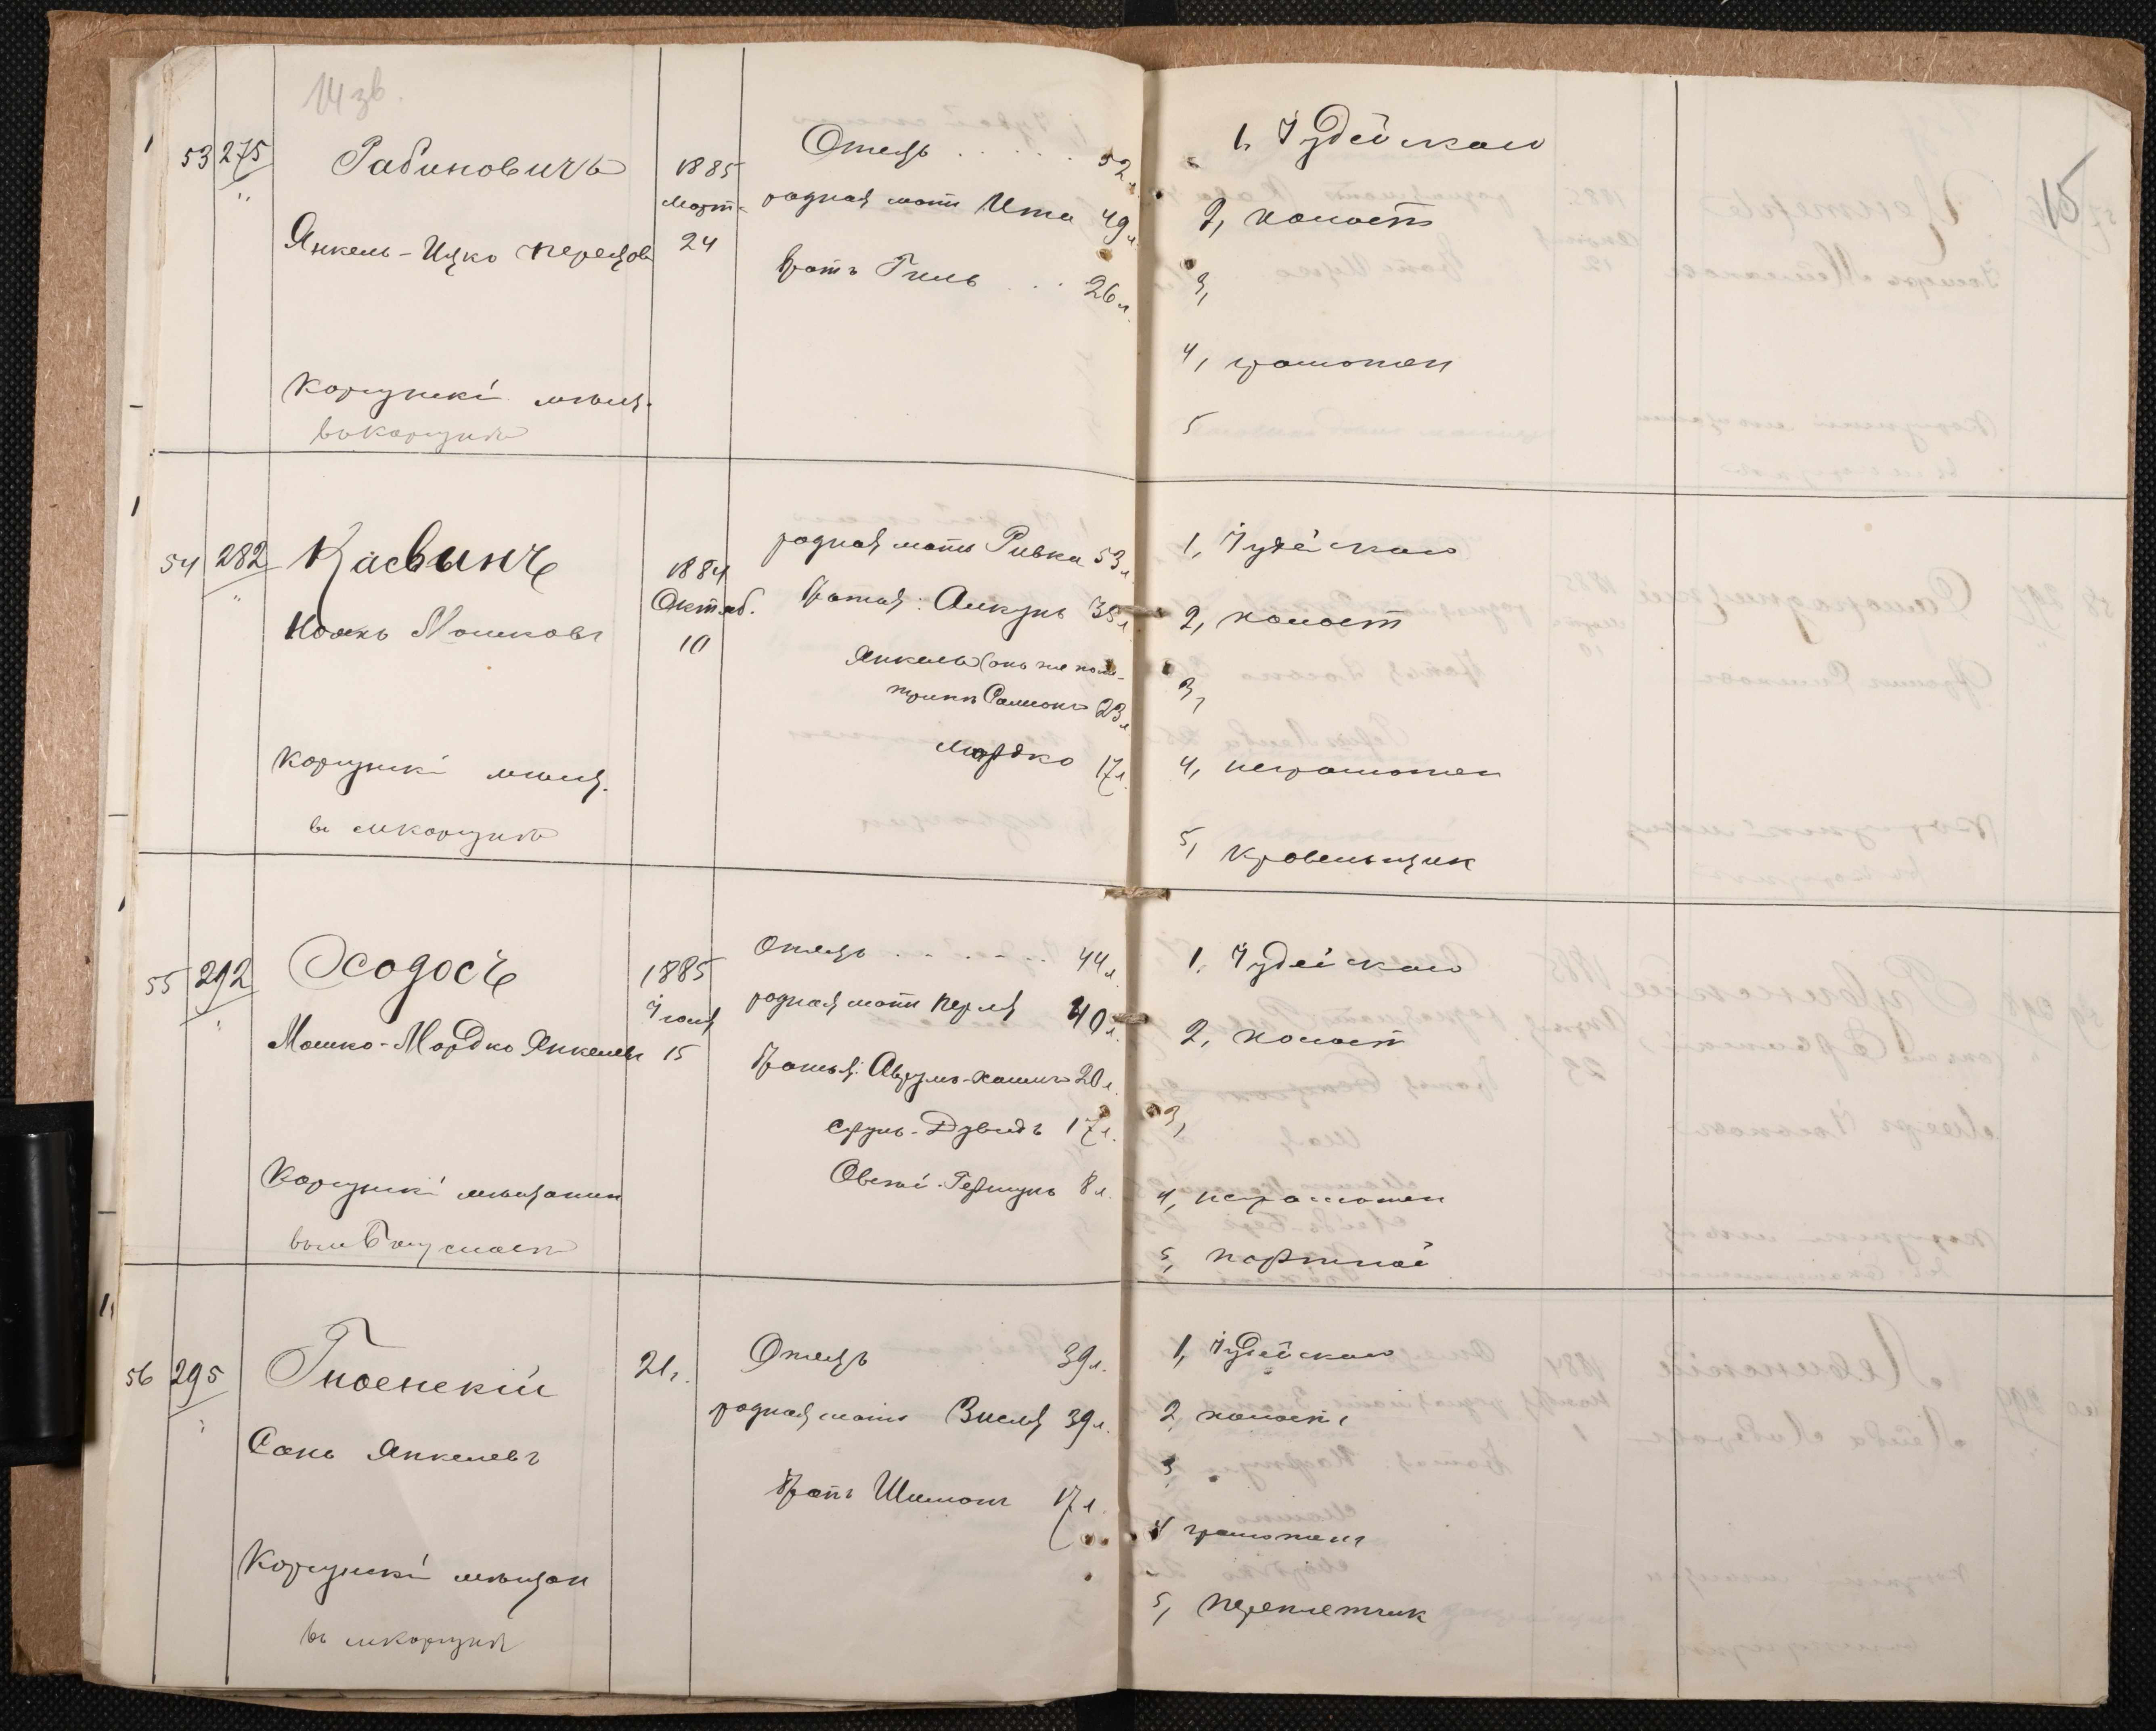 14 зв.
15
53 275
Рабиновичъ
Янкель-Ицко Перецовъ
Коршунскій мѣщ.
1885
Март.
24
Отецъ . . . . . 52 л.
родная мать Ита 49 л.
братъ Гиль . . . 26 л.
1, Іудейскаго
2, холостъ
3,
4, грамотен
5
54 282
Касвинъ
Мошковъ
мѣщ.
1884
Октяб.
10
родная мать Ривка 53 л.
братья: Анкунь 35 л.
Янкель (онъ же
23 л.
Мордко 17 л.
1, Іудейскаго
2, холост
3,
4, неграмотен
5, кровельщик
55 292
Эсодосъ
Мошко-Мордко Янкелевъ
мѣщанин
1885
Іюля
15
Отецъ . . . . . . 44 л.
родная мать Перля 40 л.
братья: Аврумъ-Хаимъ 20 л.
Сруль-Дувидъ 17 л.
Овсей-Гершунъ 8 л.
1, Іудейскаго
2, холост
3,
4, неграмотен
5, портной
56 295
Гноенскій
Сань Янкелевъ
мѣщан
21 г.
Отецъ 39 л.
родная мать Зисля 39 л.
братъ Шимонъ 17 л.
1, Іудейскаго
2, холостъ
3
4 грамотенъ
5, переплетчик